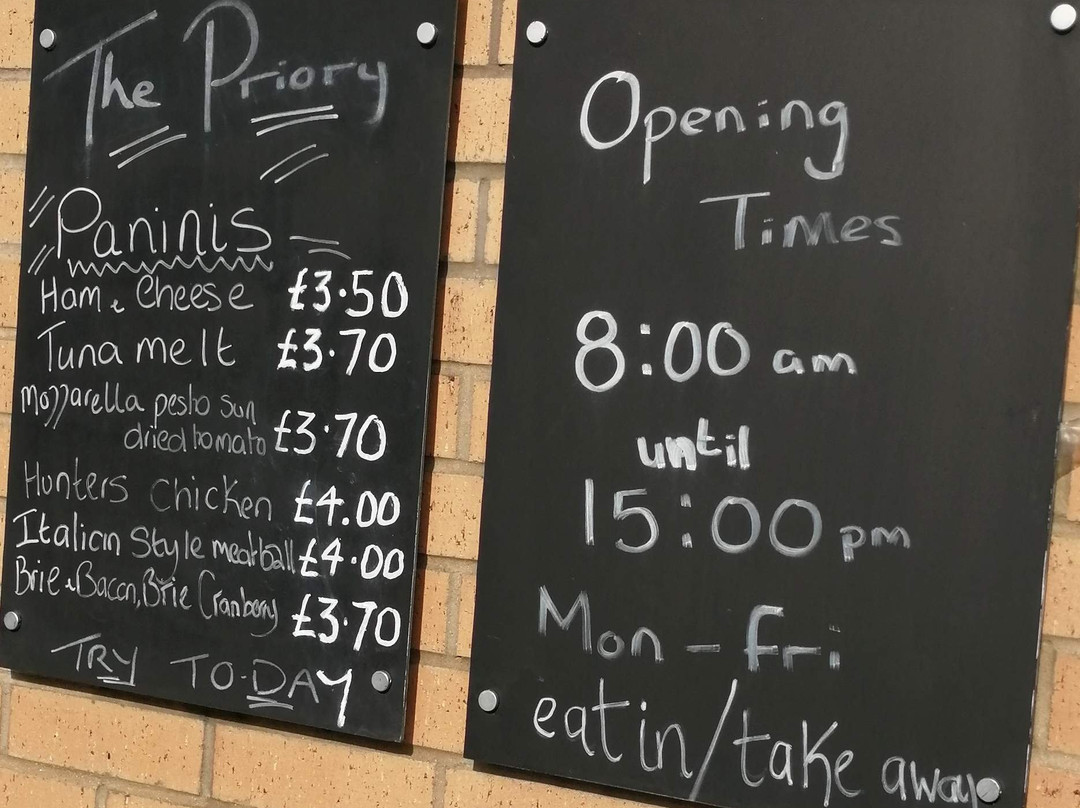 The Priory
Paninis
Ham & Cheese £3.50
Tuna melt £3.70
Mozzarella pesto Sun
dried tomato £3.70
Hunters Chicken £4.00
Italian Style meatball £4.00
Brie & Bacon, Brie Cranberry £3.70
TRY TO-DAY
Opening
Times
8:00 am
until
15:00 pm
Mon - Fri
eat in/take away